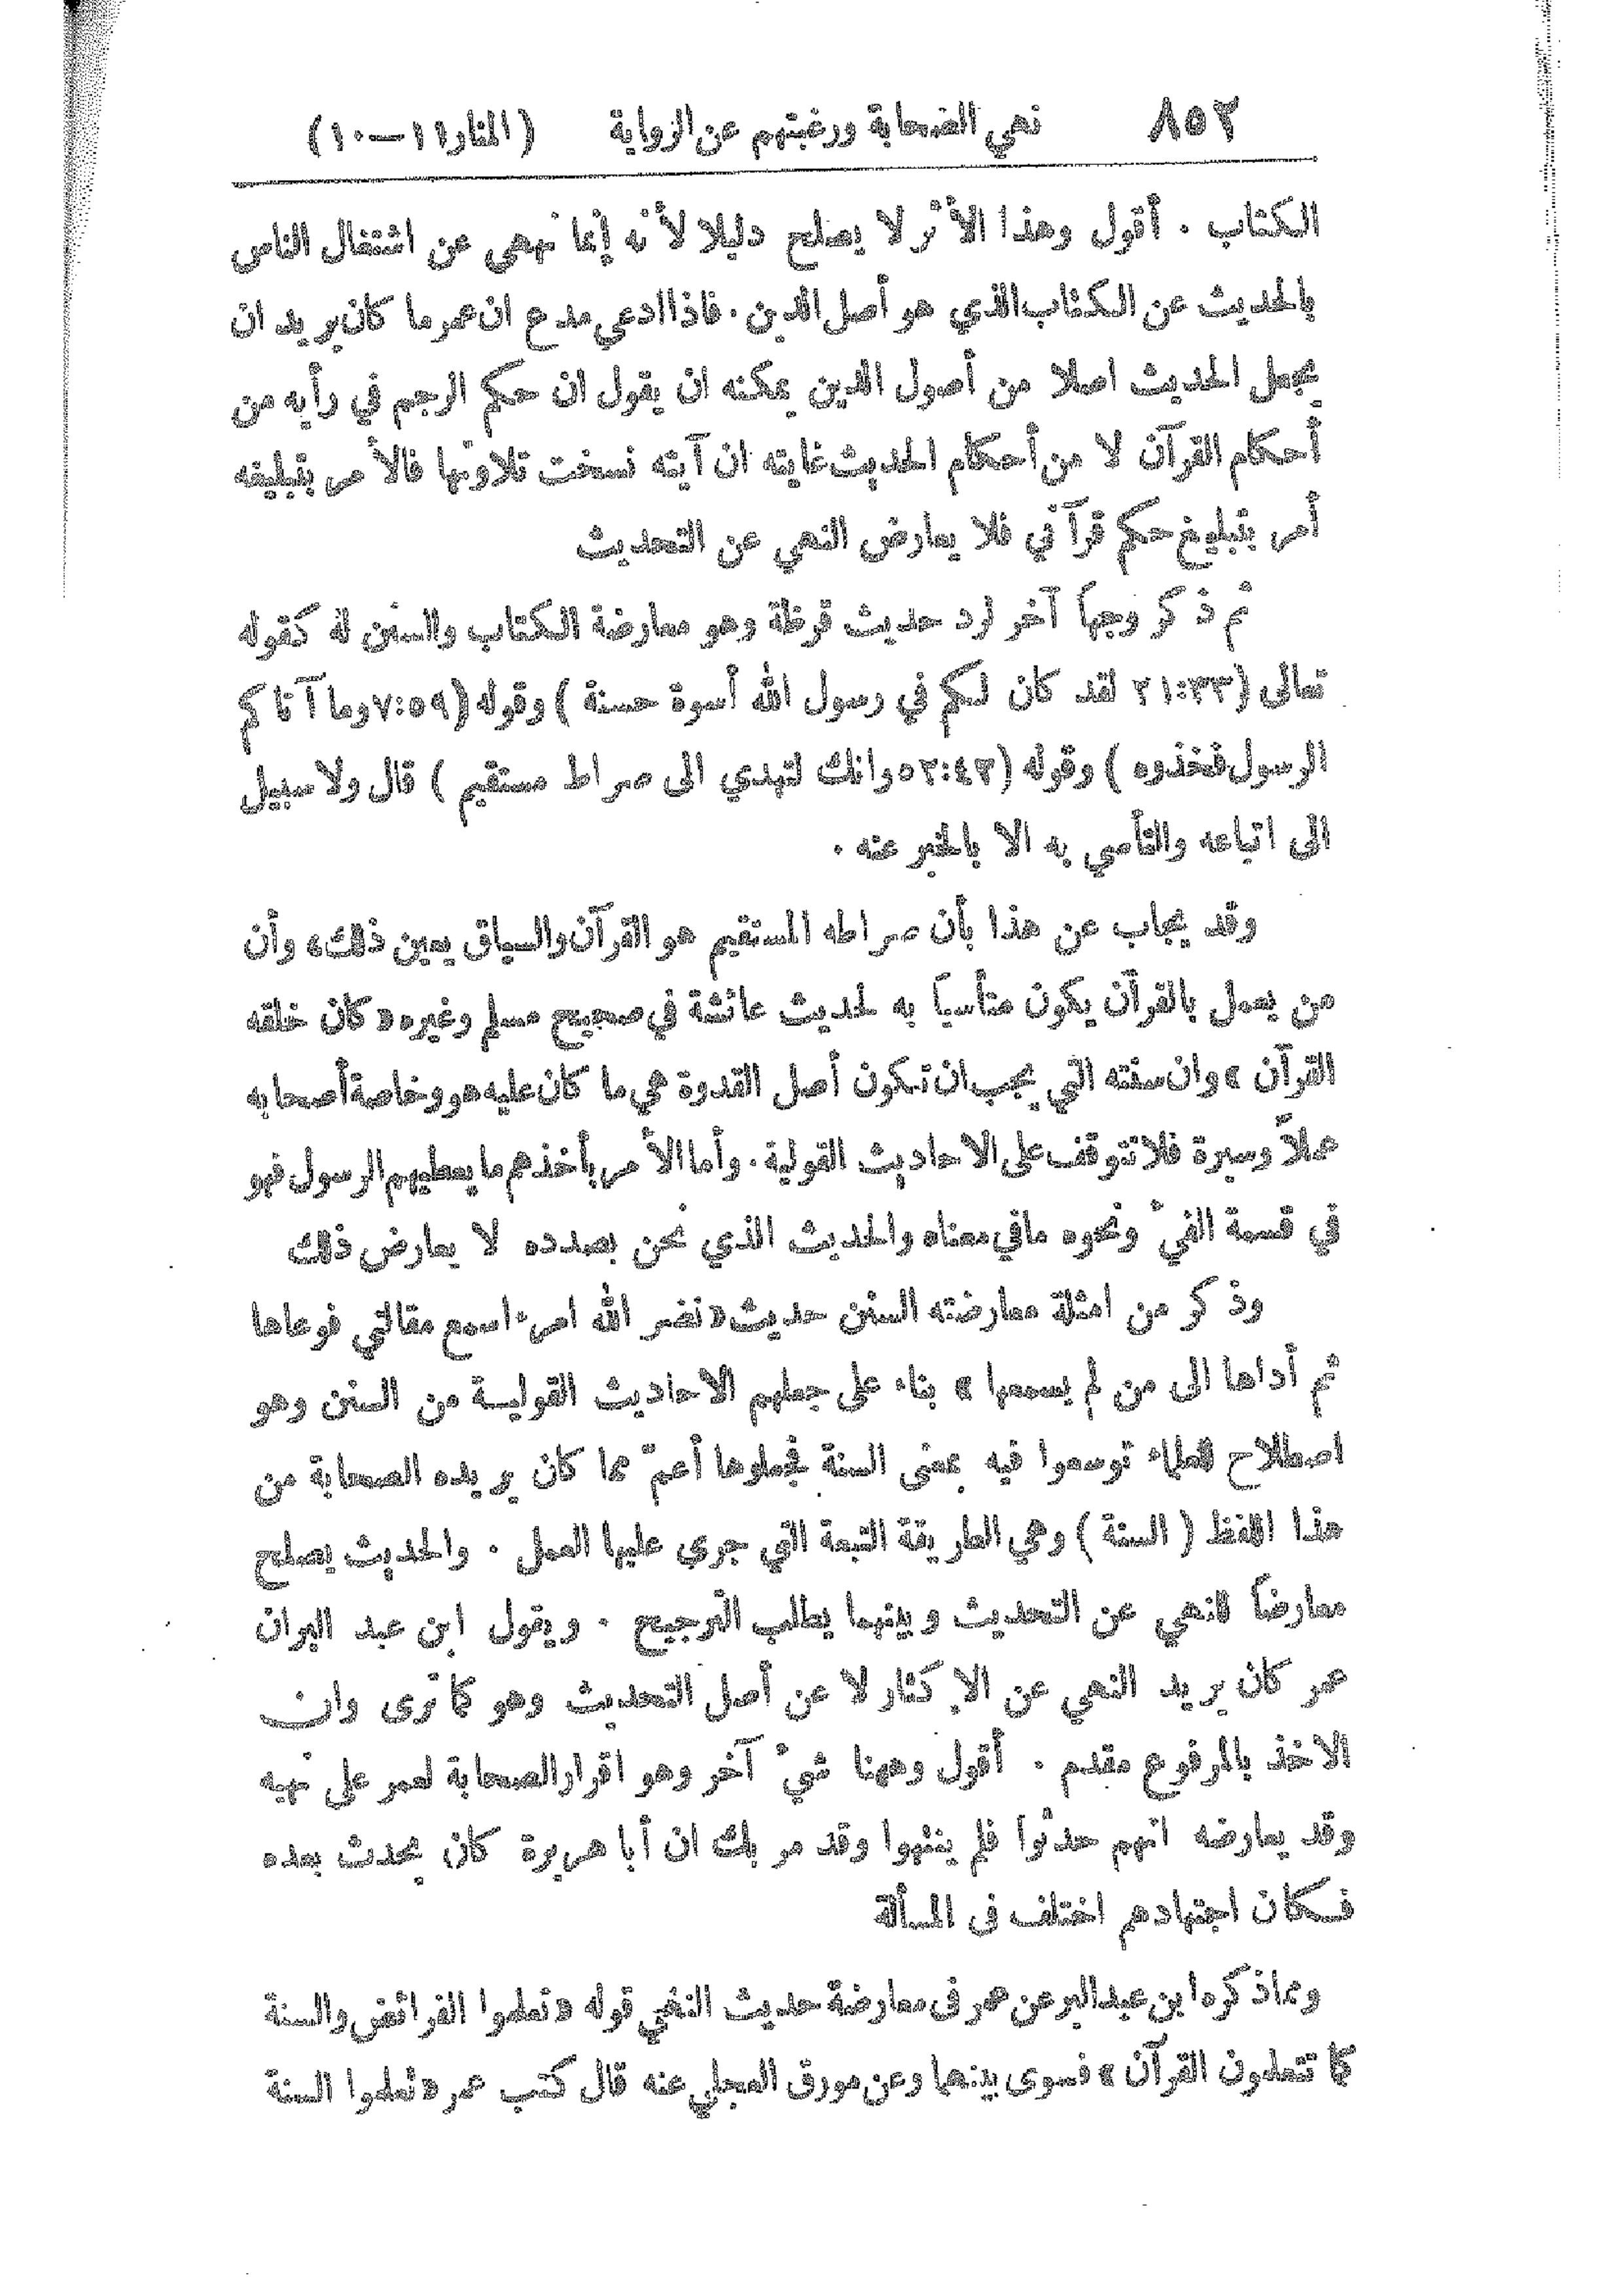 ٨٥٢ نهي الصحابة ورغبتهم عن الرواية (المنار ١١—١٠)
الكتاب . أقول وهذا الأثر لا يصلح دليلا لأنه إنما نهى عن اشتغال الناس
بالحديث عن الكتاب الذي هو أصل الدين . فاذا ادعى مدع ان عمر ما كان يريد ان
يجعل الحديث اصلا من أصول الدين يمكنه ان يقول ان حكم الرجم في رأيه من
أحكام القرآن لا من أحكام الحديث غايته ان آيته نسخت تلاوتها فالأمر بتبليغه
أمر بتبليغ حكم قرآني فلا يعارض النهي عن التحديث
ثم ذكر وجهاً آخر لرد حديث قرظة وهو معارضة الكتاب والسنن له كقوله
تعالى (٢١:٣٣ لقد كان لكم في رسول الله أسوة حسنة ) وقوله (٧:٥٩ وما آتاكم
الرسول فخذوه ) وقوله (٥٢:٤٢ وانك لتهدي الى صراط مستقيم ) قال ولا سبيل
الى اتباعه والتأسي به الا بالخبر عنه .
وقد يجاب عن هذا بأن صراطه المستقيم هو القرآن والسياق يعين ذلك، وأن
من يعمل بالقرآن يكون متأسياً به لحديث عائشة في صحيح مسلم وغيره « كان خلقه
القرآن » وان سنته التي يجب ان تكون أصل القدوة هي ما كان عليه هو وخاصة أصحابه
عملاً وسيرة فلا تتوقف على الاحاديث القولية . وأما الأمر بأخذهم ما يعطيهم الرسول فهو
في قسمة الفيْ ونحوه مافي معناه والحديث الذي نحن بصدده لا يعارض ذلك
وذكر من امثلة معارضته السنن حديث « نضر الله امرءا سمع مقالتي فوعاها
ثم أداها الى من لم يسمعها » بناء على جعلهم الاحاديث القولية من السنن وهو
اصطلاح للعلماء توسعوا فيه بمعنى السنة فجعلوها أعمّ مما كان يريده الصحابة من
هذا اللفظ ( السنة ) وهي الطريقة المتبعة التي جرى عليها العمل . والحديث يصلح
معارضاً للنهي عن التحديث وبينهما يطلب الترجيح . ويقول ابن عبد البران
عمر كان يريد النهي عن الإكثار لا عن أصل التحديث وهو كما ترى وان
الاخذ بالمرفوع مقدم . أقول وههنا شيْ آخر وهو اقرار الصحابة لعمر على نهيه
وقد يعارضه انهم حدثوا فلم ينتهوا وقد مر بك ان أبا هريرة كان يحدث بعده
فكان اجتهادهم اختلف فى المسألة
ومما ذكره ابن عبد البر عن عمر فى معارضة حديث النهي قوله « تعلموا الفرائض والسنة
كما تتعلمون القرآن » فسوى بينهما وعن مورق العجلي عنه قال كتب عمر « تعلموا السنة